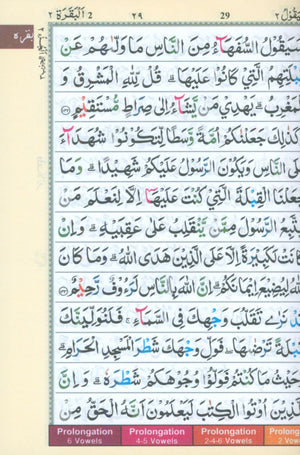 سَيَقُولُ ٢ ٢٩ 29 اَلْبَقَرَة ٢ 2
سَيَقُولُ السُّفَهَآءُ مِنَ النَّاسِ مَا وَلّٰىهُمْ عَنْ
قِبْلَتِهِمُ الَّتِيْ كَانُوْا عَلَيْهَا ؕ قُلْ لِّلّٰهِ الْمَشْرِقُ وَ
الْمَغْرِبُ ؕ يَهْدِيْ مَنْ يَّشَآءُ اِلٰى صِرَاطٍ مُّسْتَقِيْمٍ
كَذٰلِكَ جَعَلْنٰكُمْ اُمَّةً وَّسَطًا لِّتَكُوْنُوْا شُهَدَآءَ
عَلَى النَّاسِ وَيَكُوْنَ الرَّسُوْلُ عَلَيْكُمْ شَهِيْدًا ؕ وَمَا
جَعَلْنَا الْقِبْلَةَ الَّتِيْ كُنْتَ عَلَيْهَآ اِلَّا لِنَعْلَمَ مَنْ
يَّتَّبِعُ الرَّسُوْلَ مِمَّنْ يَّنْقَلِبُ عَلٰى عَقِبَيْهِ ؕ وَاِنْ
كَانَتْ لَكَبِيْرَةً اِلَّا عَلَى الَّذِيْنَ هَدَى اللّٰهُ ؕ وَمَا كَانَ
اللّٰهُ لِيُضِيْعَ اِيْمَانَكُمْ ؕ اِنَّ اللّٰهَ بِالنَّاسِ لَرَءُوْفٌ رَّحِيْمٌ
قَدْ نَرٰى تَقَلُّبَ وَجْهِكَ فِى السَّمَآءِ ۚ فَلَنُوَلِّيَنَّكَ
قِبْلَةً تَرْضٰىهَا ۪ فَوَلِّ وَجْهَكَ شَطْرَ الْمَسْجِدِ الْحَرَامِ ؕ
وَحَيْثُ مَا كُنْتُمْ فَوَلُّوْا وُجُوْهَكُمْ شَطْرَهٗ ؕ وَاِنَّ
الَّذِيْنَ اُوْتُوا الْكِتٰبَ لَيَعْلَمُوْنَ اَنَّهُ الْحَقُّ مِنْ
Prolongation Prolongation Prolongation Prolong
6 Vowels 4-5 Vowels 2-4-6 Vowels 2 Vowe